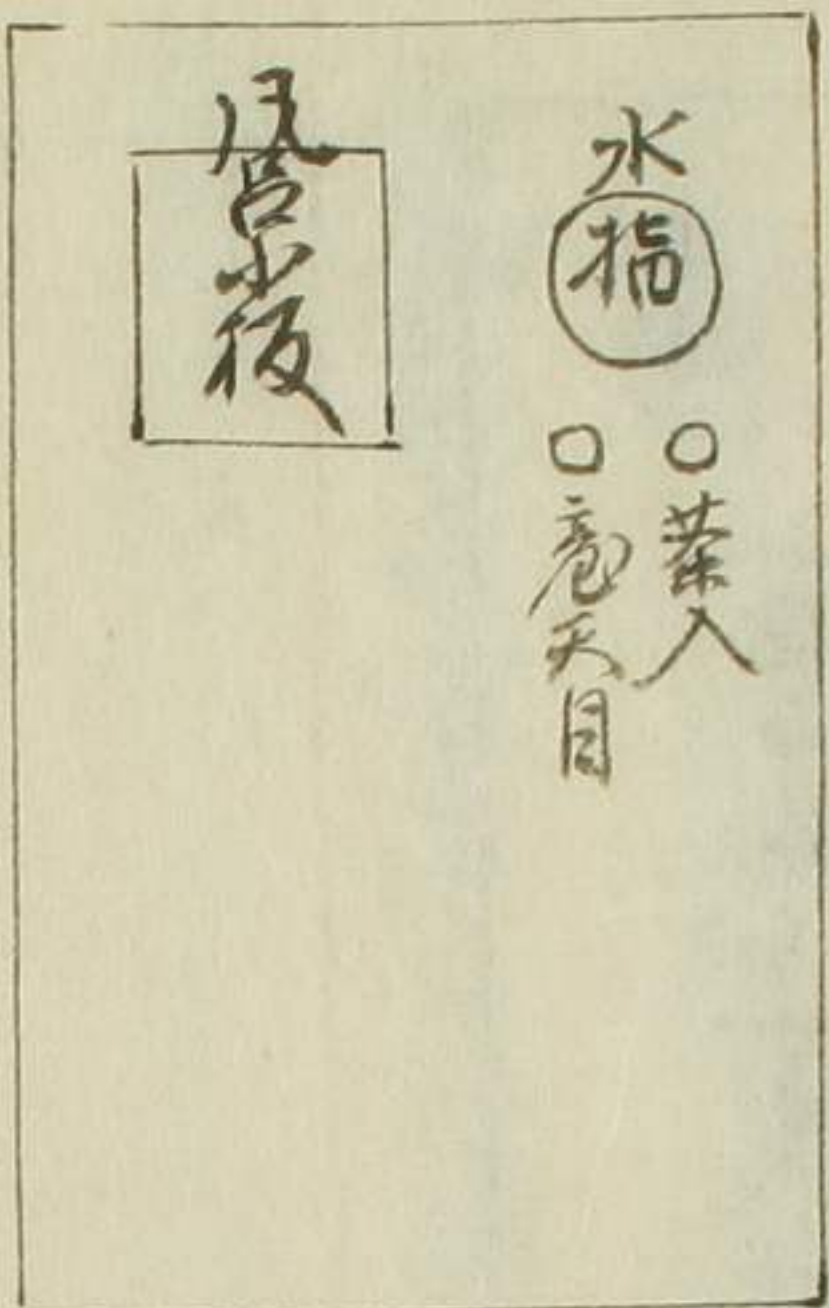 水指
茶入
臺天目
風呂小板